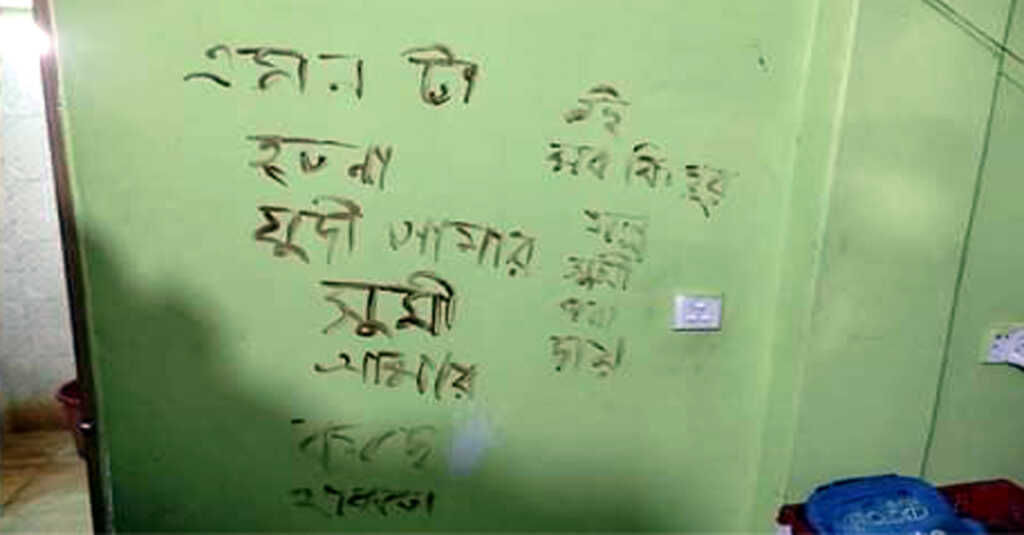 এমন টা
হতনা
যুদী আমার
সুমী
আমার
কাছে
থাকতো
এই
সব কিছুর
সুমী
দায়